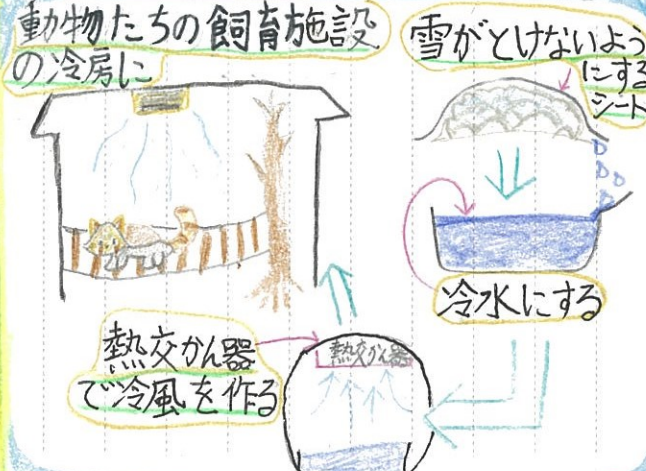 動物たちの飼育施設
の冷房に
雪がとけないよう
にする
シート
冷水にする
熱交かん器
で冷風を作る
熱交かん器